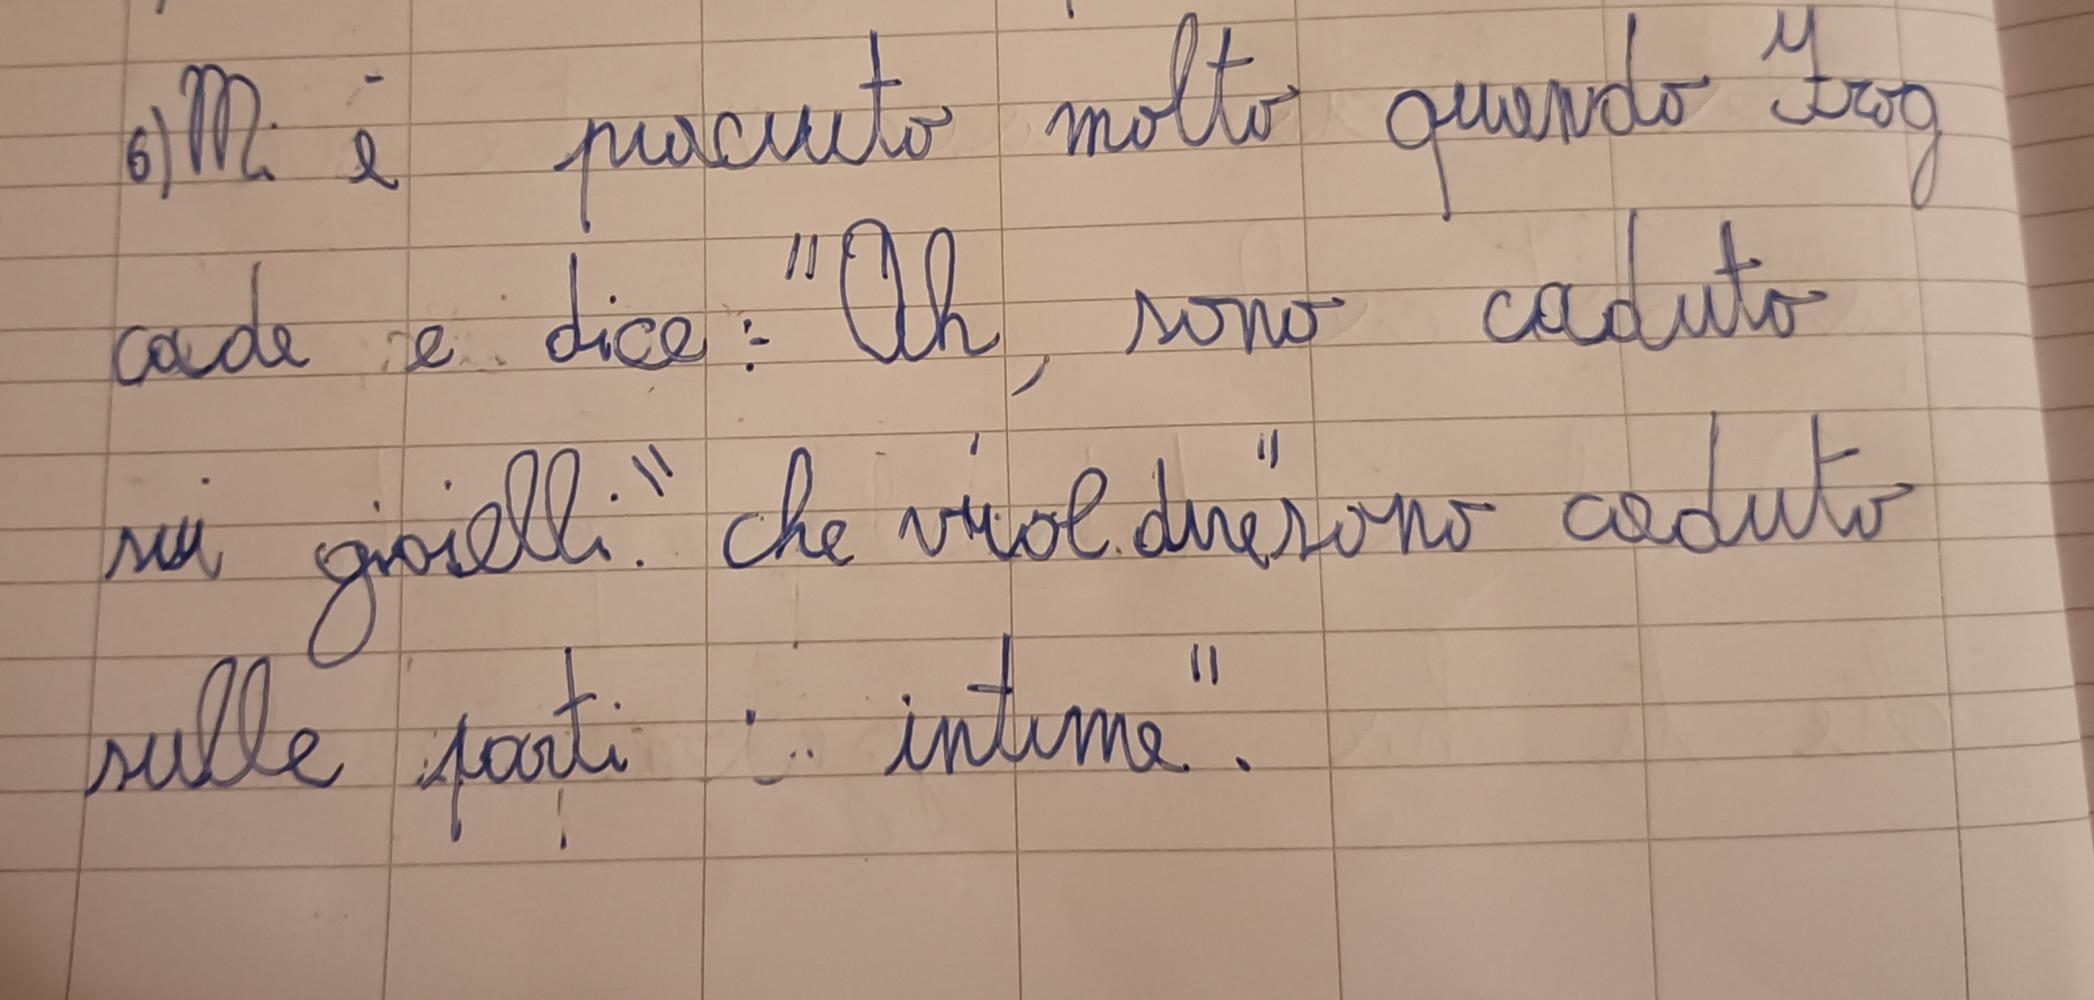 6) Mi è piacuto molto quando Frog
cade e dice: "Ah, sono caduto
sui gioielli." che vuol dire "sono caduto
sulle parti intime".